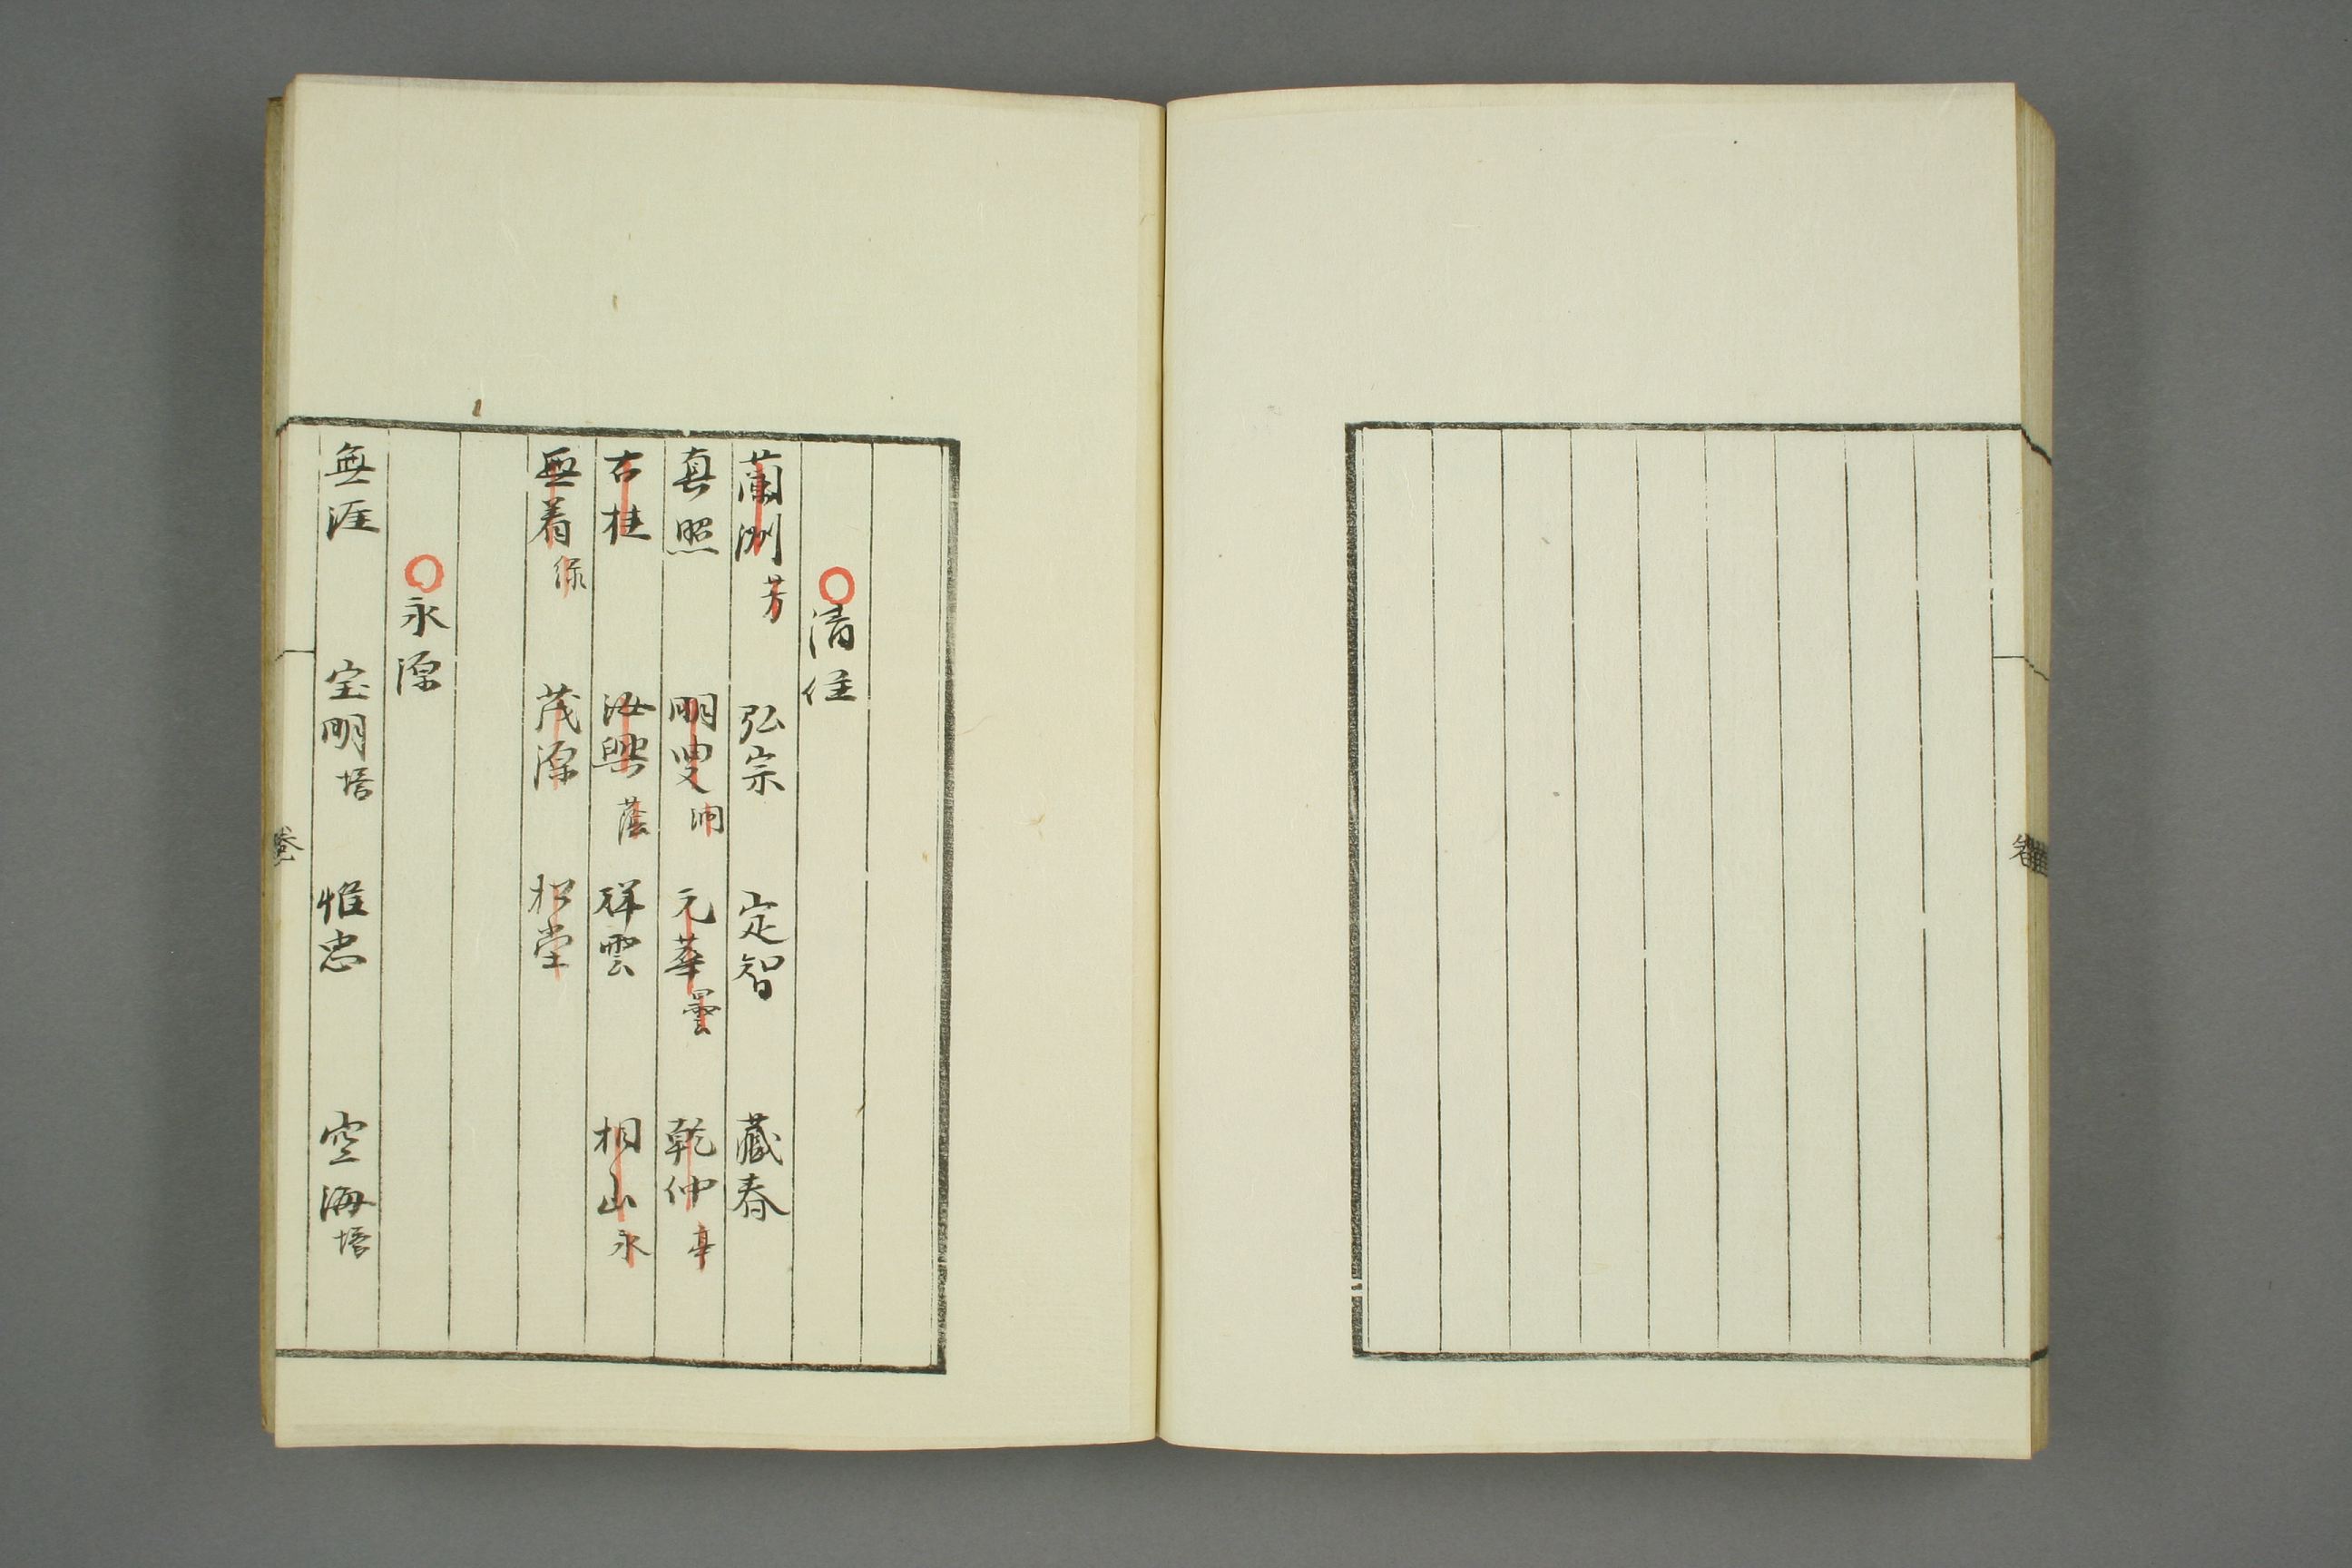 清住
蘭洲芳 弘宗 定智 蔵春
真照 明叟 元華曇 乾仲亭
古桂 汝興蔭 祥雲 相山永
無着 茂源 松堂
永源
無涯 宝明塔 惟忠 空海塔